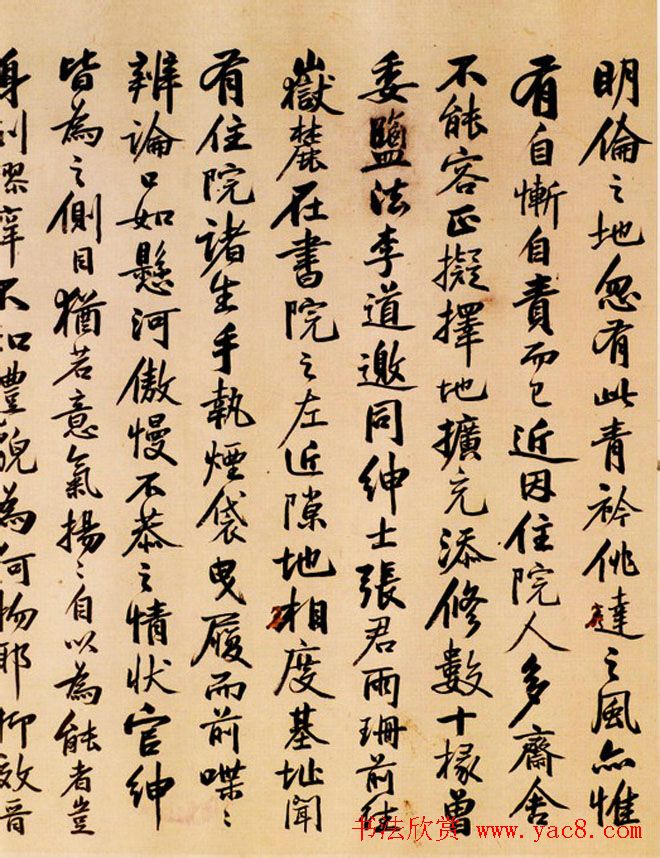 明倫之地忽有此青衿佻達之風亦惟
有自慚自責而已近因住院人多齋舍
不能容正擬擇地擴充添修數十椽曾
委鹽法李道邀同紳士張君雨珊前往
嶽麓在書院之左近隙地相度基址聞
有住院諸生手執煙袋曳履而前喋〻
辨論口如懸河傲慢不恭之情狀官紳
皆為之側目猶若意氣揚〻自以為能者豈
身列膠庠不知禮貌為何物耶抑效晉
书法欣赏 www.yac8.com